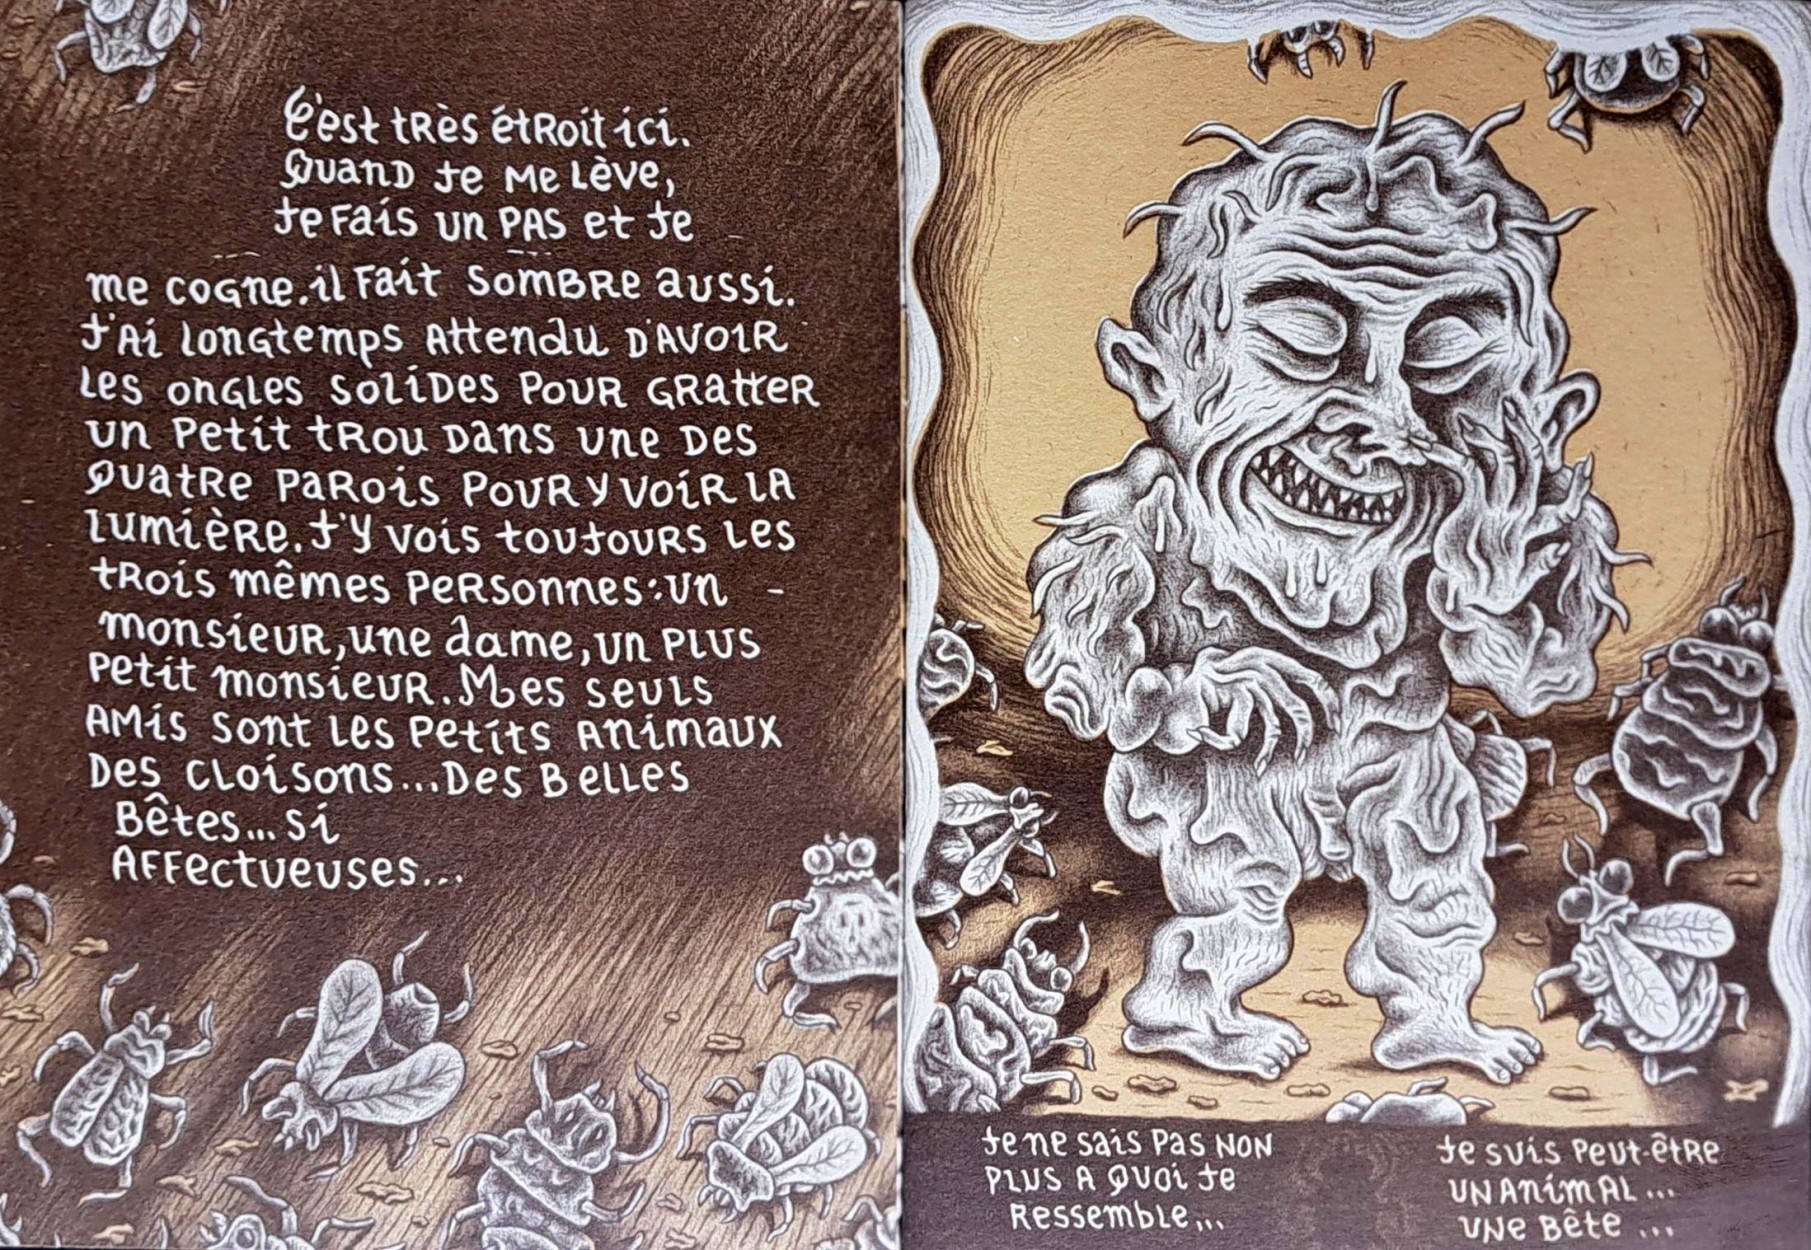 C'est très étroit ici.
Quand je me lève,
je fais un pas et je
me cogne. il fait sombre aussi.
J'ai longtemps attendu d'avoir
les ongles solides pour gratter
un petit trou dans une des
quatre parois pour y voir la
lumière. J'y vois toujours les
trois mêmes personnes : un
monsieur, une dame, un plus
petit monsieur. Mes seuls
amis sont les petits animaux
des cloisons... Des belles
bêtes... si
affectueuses...
Je ne sais pas non
plus a quoi je
ressemble...
Je suis peut-être
un animal...
une bête ...